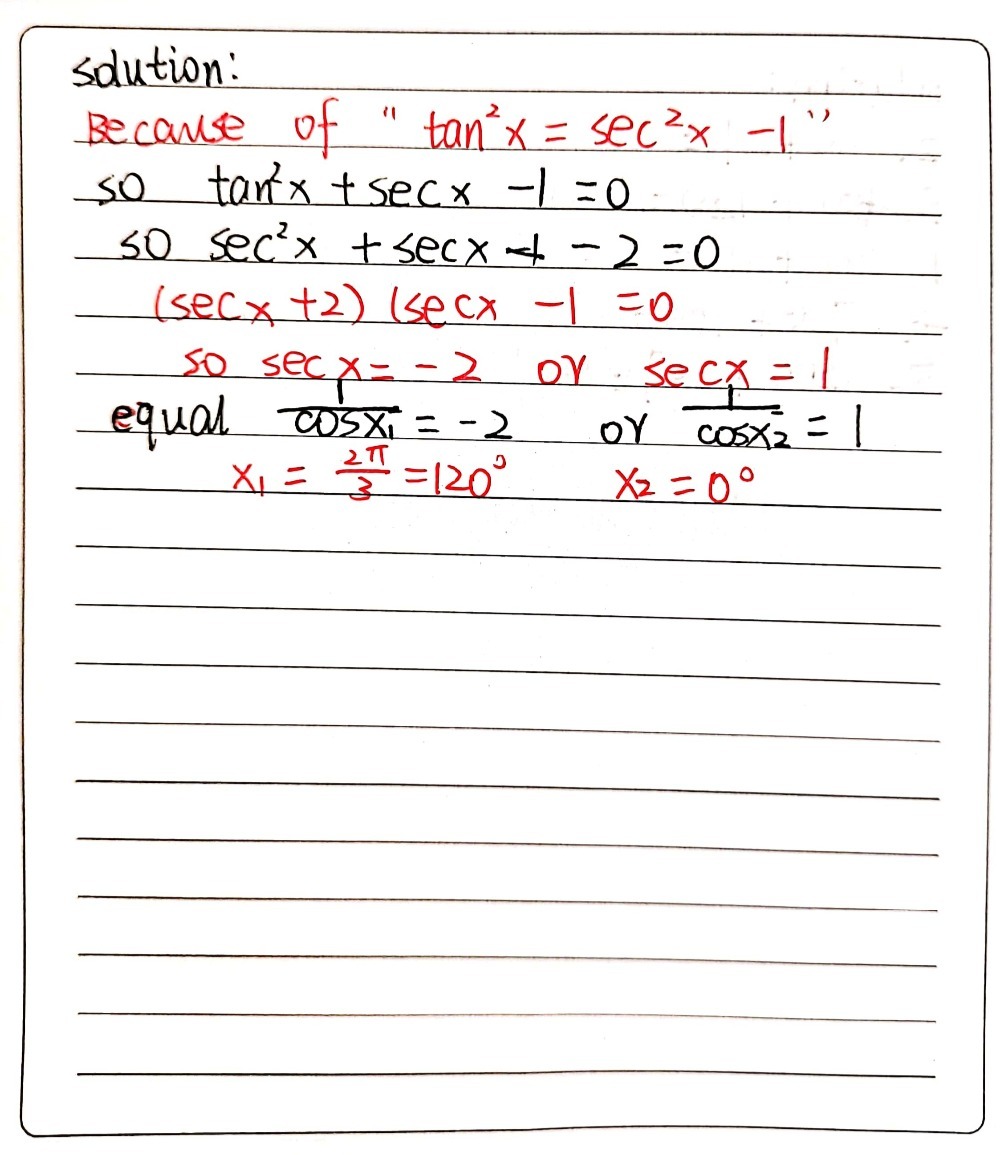 solution:
Because of " tan²x = sec²x -1 "
so tan²x + secx -1 = 0
so sec²x + secx - 2 = 0
(secx +2) (secx -1 = 0
so sec x = -2 or secx = 1
equal 1/cosx₁ = -2 or 1/cosx₂ = 1
x₁ = 2π/3 = 120° x₂ = 0°